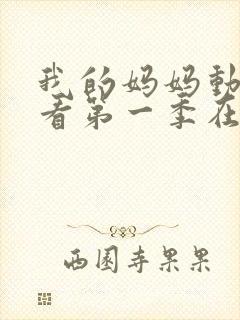 我的妈妈動
看第一季在
西園寺果果